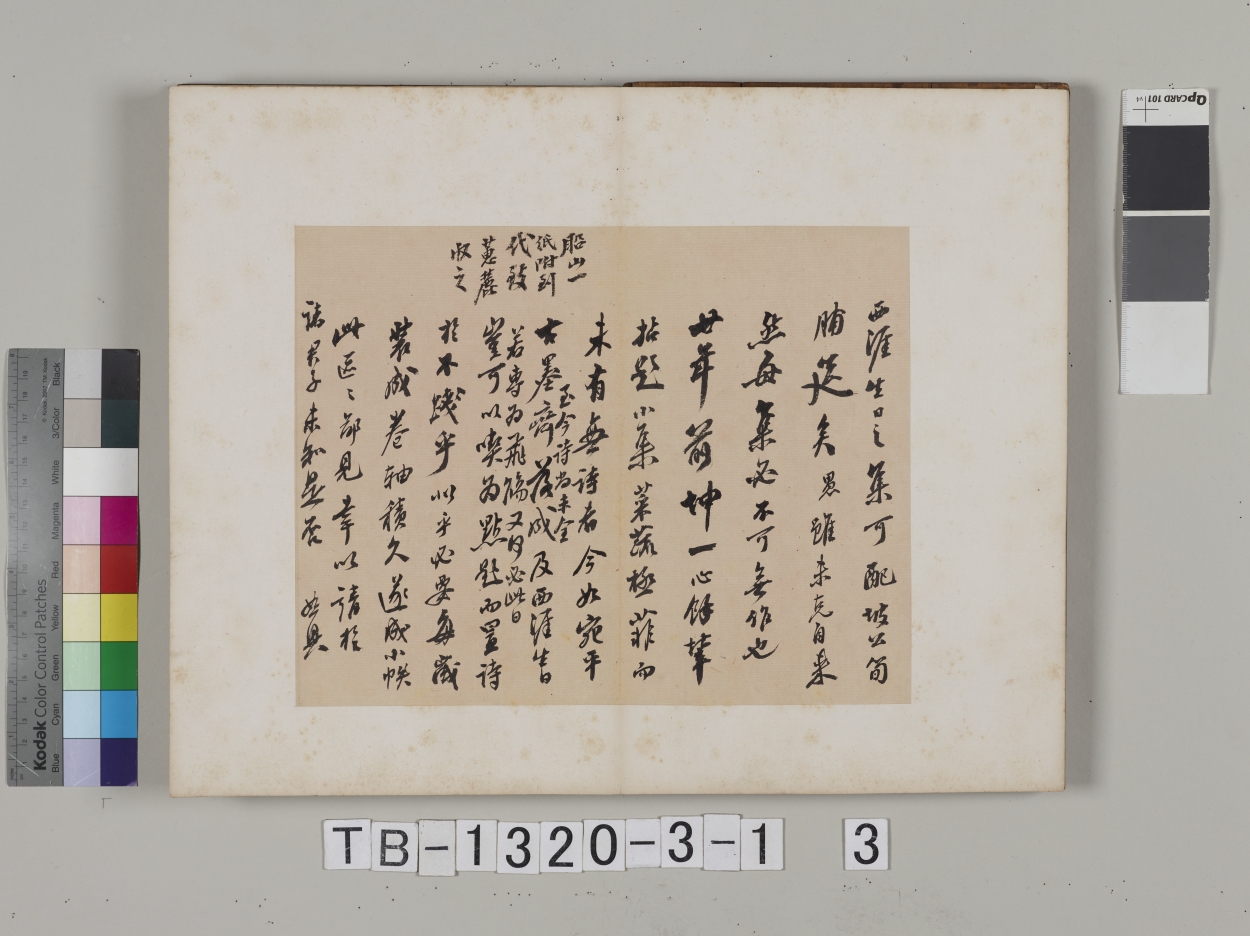 西涯生日之集可配坡公筍
脯筵矣愚雖未克自来
然每集必不可無作也
廿年前坤一心餘輩
拈題小集菜蔬極菲而
未有無詩者今如宛平
古墨齋落成及西涯生日
至今詩尚未全
若專為飛觴又何必此日
豈可以喫為點題而置詩
於不錢乎似乎必要每歲
裝成卷軸積久遂成小帙
此區〻鄙見幸以請於
諸君子未知是否
船山一
紙附到
代致
蕙麓
收之
Kodak Color Control Patches
Blue Cyan Green Yellow Red Magenta White 3/Color Black
QPCARD 101 v4
TB-1320-3-1 3